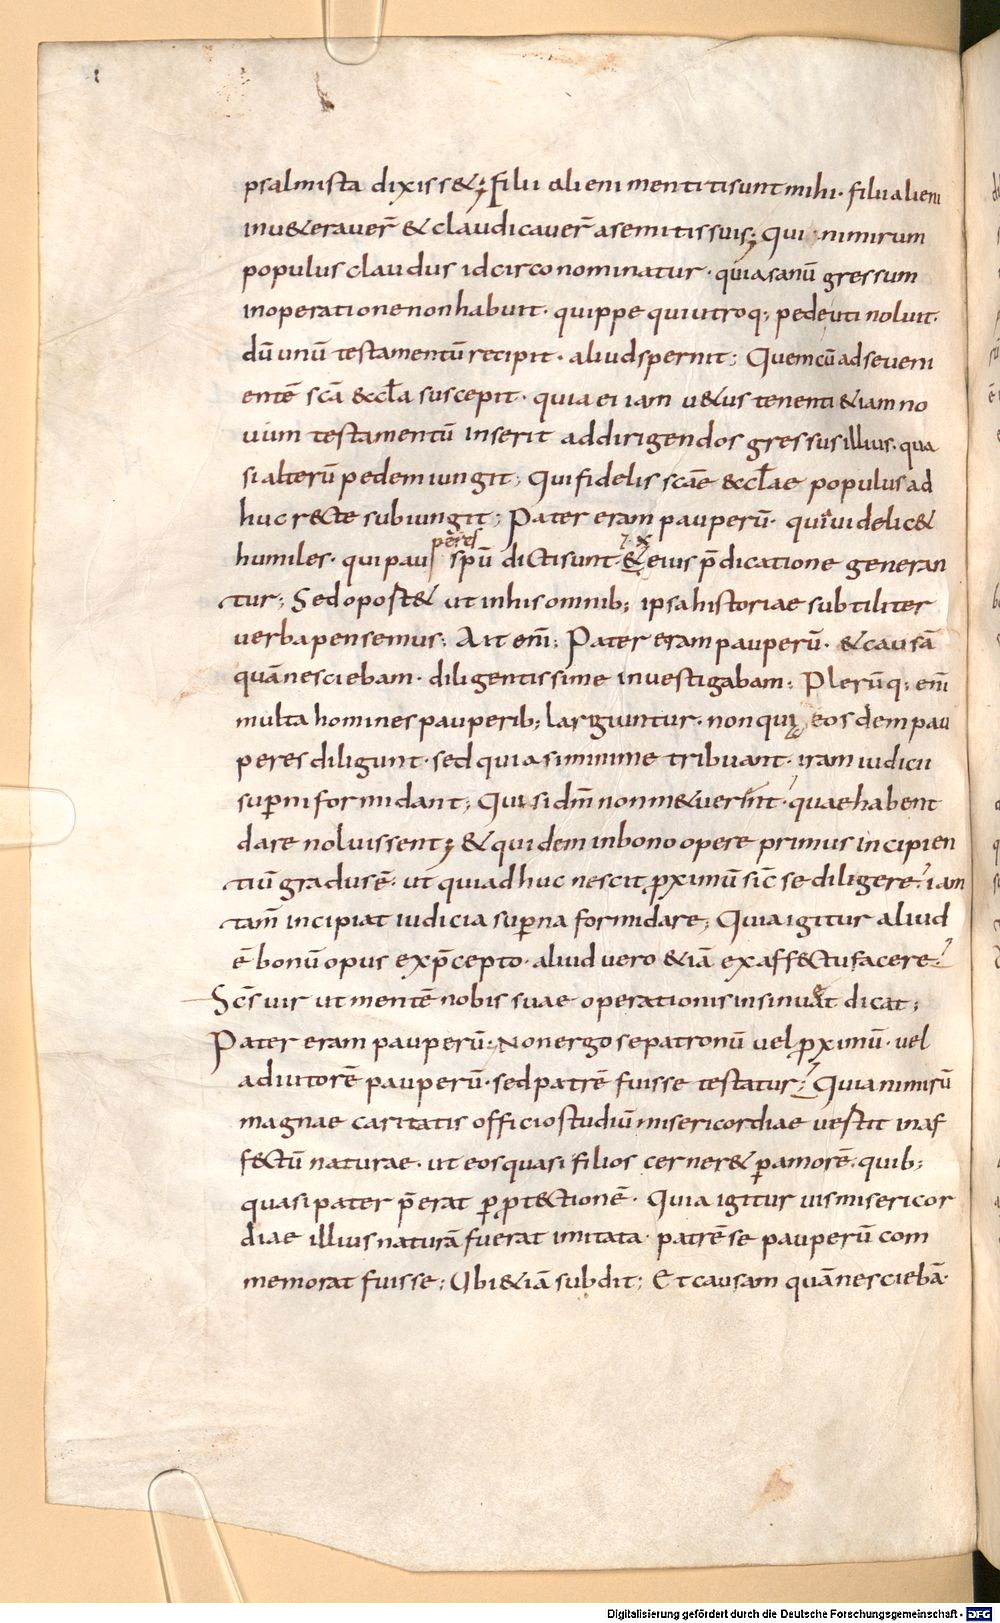 psalmista dixiss&; Filii alieni mentiti sunt mihi· filii alieni
inu&erauer̄ & claudicauer̄ a semitis suis; Qui nimirum
populus claudus idcirco nominatur· quia sanū gressum
in operatione non habuit· quippe qui utroq; pede uti noluit·
dū unū testamentū recipit· aliud spernit; Quem cū ad se ueni
entē sc̄a &ccl̄a suscepit· quia ei iam u&us tenenti &iam no
uum testamentū inserit ad dirigendos gressus illius· qua
si alterū pedem iungit; Qui fidelis sc̄ae &ccl̄ae populus ad
huc r&cte subiungit; Pater eram pauperū· qui uidelic&
humiles· qui pauperes spū dicti sunt· & eius p̄dicatione generan
tur; Sed oport& ut in his omnib; ipsa historiae subtiliter
uerba pensemus; Ait eni̅; Pater eram pauperū· & causā
quā nesciebam· diligentissime inuestigabam; Plerūq; eni̅
multa homines pauperib; largiuntur· non quia eosdem pau
peres diligunt· sed quia si minime tribuant· iram iudicii
sup̱ni formidant; Qui si dm̄ non m&uerint· quae habent
dare noluissent; & quidem in bono opere primus incipien
tiū gradus ē· ut qui adhuc nescit p̱ximū sic̄ se diligere· iam
tam̄ incipiat iudicia sup̱na formidare; Quia igitur aliud
ē bonū opus ex p̄cepto· aliud uero &iā ex aff&ctu facere·
Sc̄s uir ut mentē nobis suae operationis insinuet dicat;
Pater eram pauperū; Non ergo se patronū uel p̱ximū· uel
adiutorē pauperū· sed patrē fuisse testatur; Quia nimirū
magnae caritatis officio studiū misericordiae uertit in af
f&ctū naturae· ut eos quasi filios cerner& p̱ amorē· quib;
quasi pater p̄erat p̱ p̱t&ctionē· Quia igitur uis misericor
diae illius naturā fuerat imitata· patrē se pauperū com
memorat fuisse; Ubi &iā subdit; Et causam quā nesciebā·
Digitalisierung gefördert durch die Deutsche Forschungsgemeinschaft - DFG